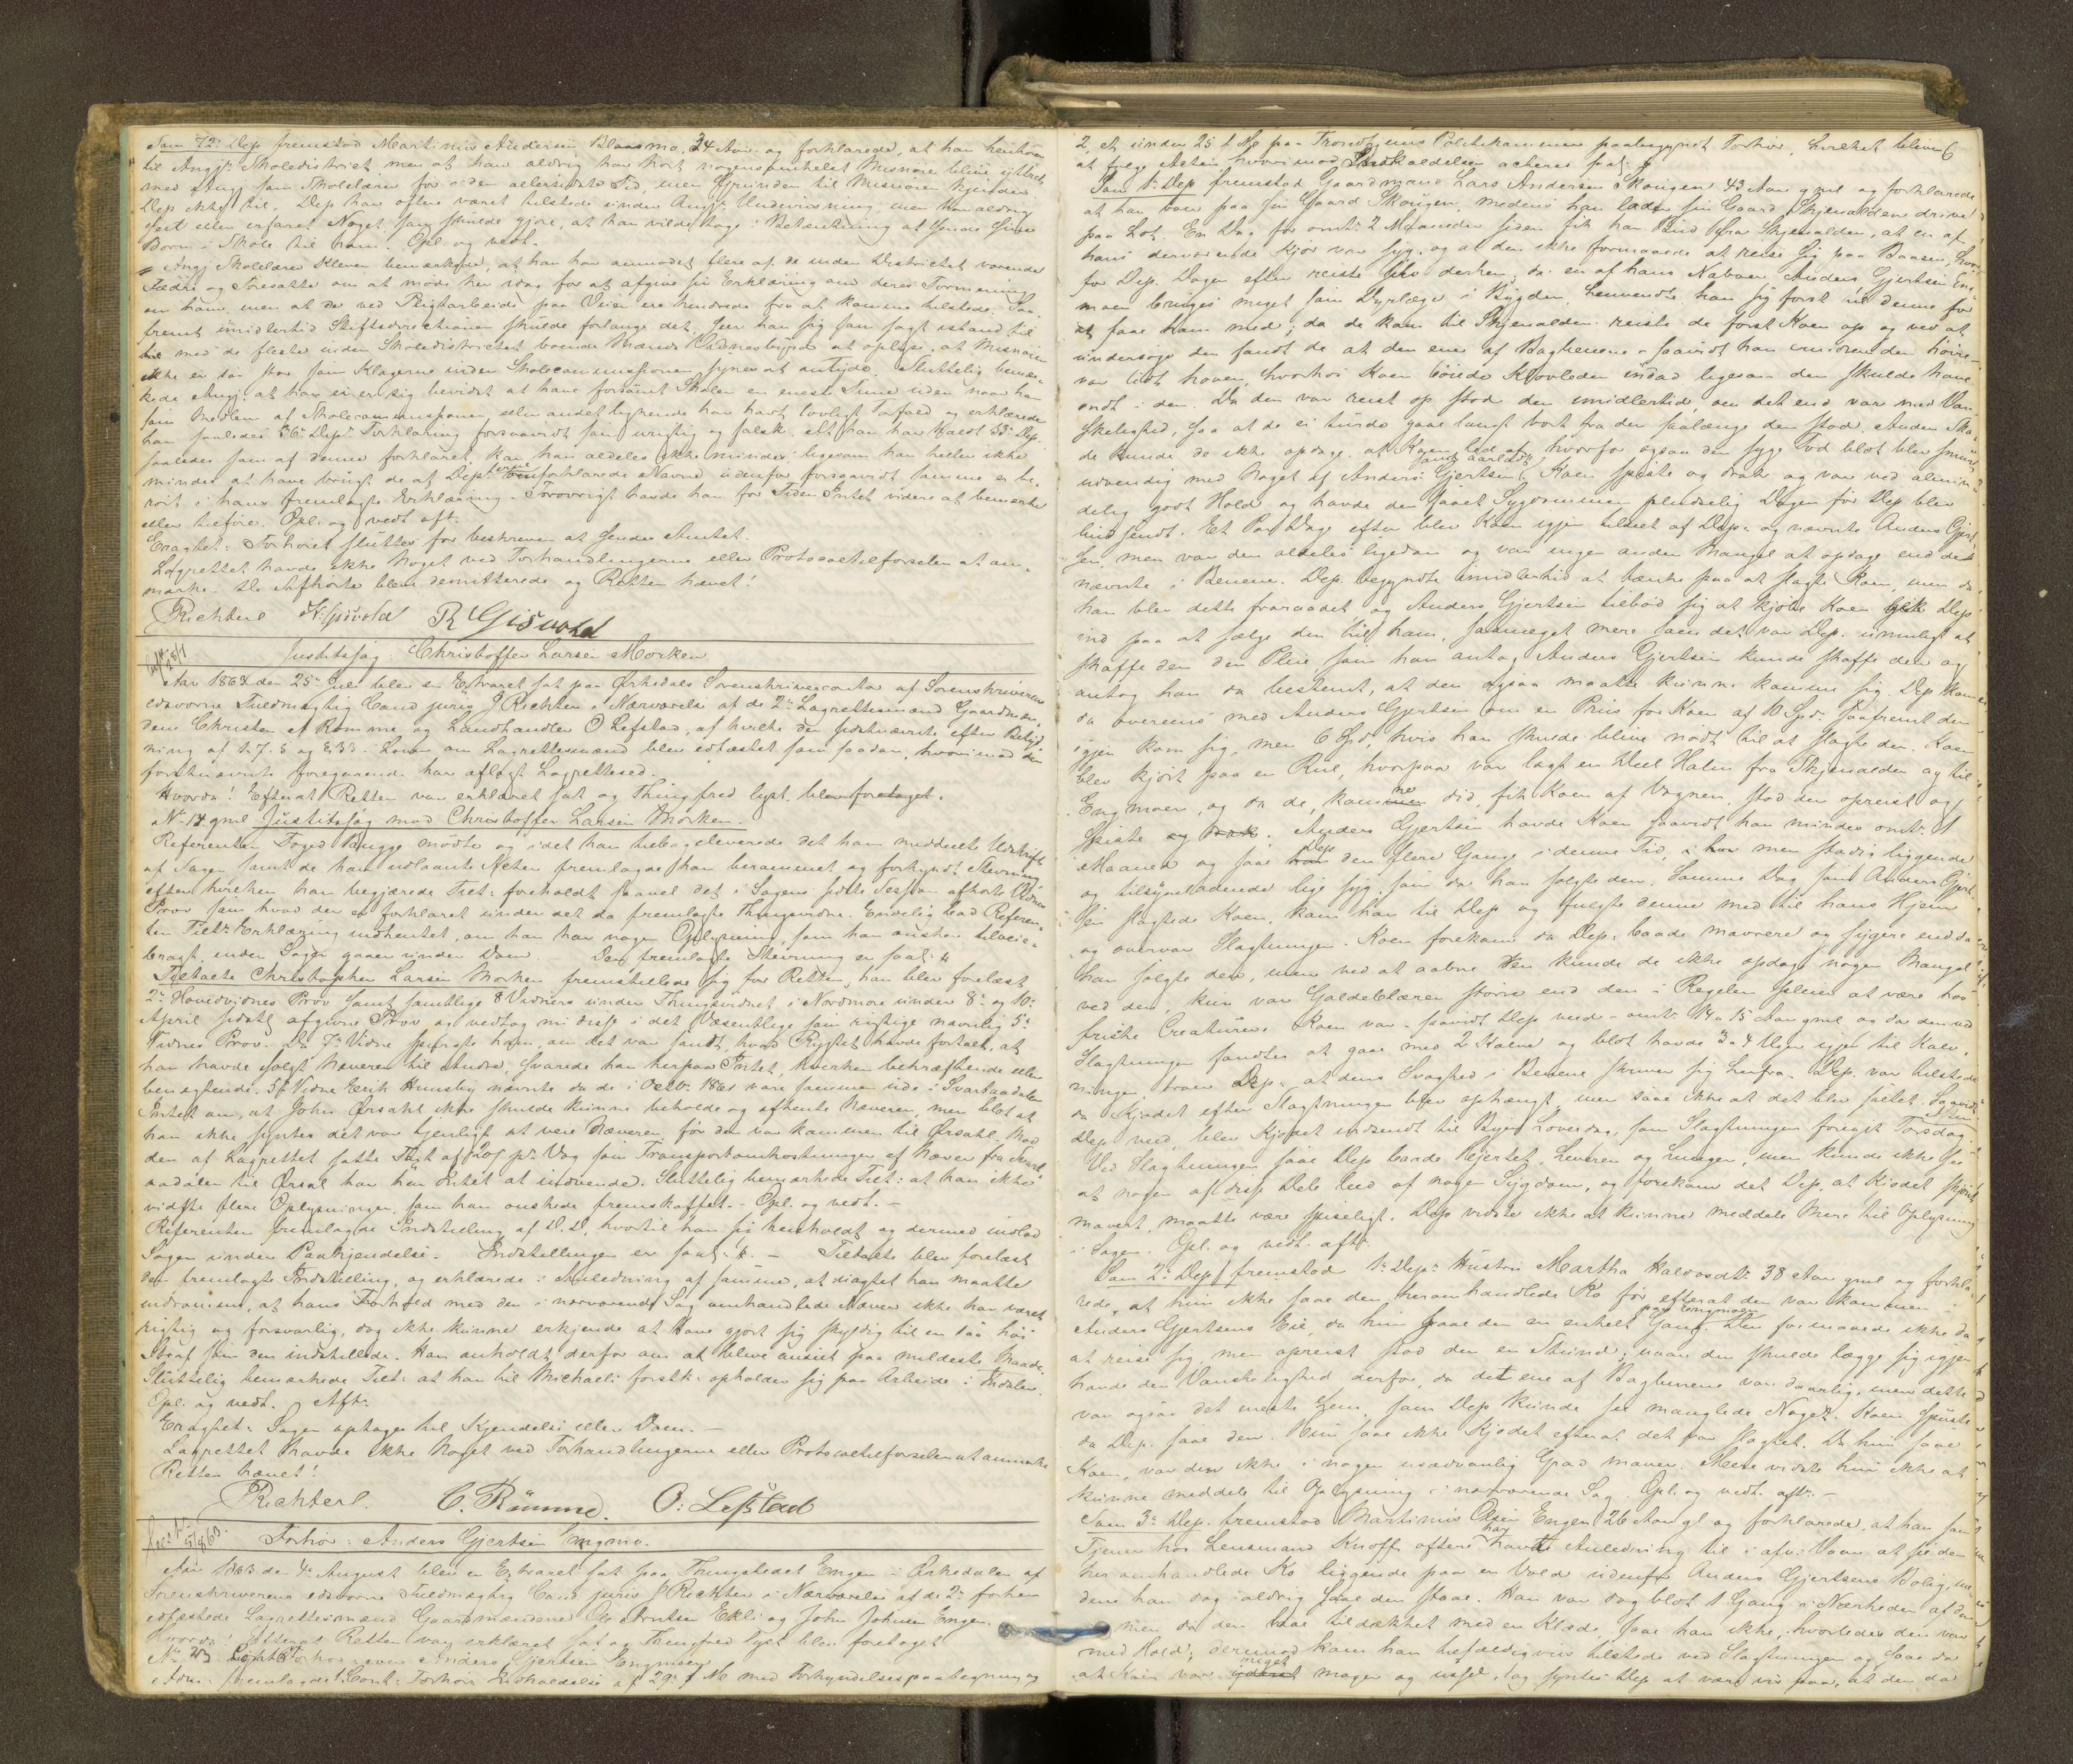 Som 72de Dep. fremstod Martinus Andersen Blaasmo, 34 Aar og forklarede, at han henhører
til Angj. Skoledistrict, men at han aldrig har hørt nogensomhelst Misnøie blive yttret
med Angj. som Skolelærer før i den allersidste Tid, men Grunden til Misnøien kjender
Dep. ikke til. Dep. har oftere været tilstede under Angj. Underviisning men har aldrig
seet eller erfaret Noget, som skulde gjøre, at han vilde tage i Betænkning at sende sine
Børn i Skole til ham. Opl. og vedt.
Angj. Skolelærer Kleven bemærkede, at han har anmodet flere af de inden Districtet værende
Fædre og Foresatte om at møde her idag for at afgive sin Erklæring om deres Formening
om ham, men at de ved Pligtarbeide paa Veien ere hindrede fra at komme tilstede. Saa-
fremt imidlertid Stiftsdirectionen skulde forlange det, seer han sig som sagt istand til
med de fleste inden Skoledistrictet boende Mænds Vidnesbyrd at oplyse, at Misnøien
ikke er saa stor som Klagerne inden Skolecommissionen synes at antyde. Sluttelig bemær-
kede Angj. at han ei er sig bevidst at have forsømt Skolen en eneste Time uden naar han
som Medlem af Skolecommissionen, eller andet lignende har havt lovligt Forfald og erklærede
han saaledes 36te Dep. Forklaring forsaavidt som urigtig og falsk. At han har kaldt 53de Dep.
saaledes som af denne forklaret, kan han aldeles ikke mindes ligesom han heller ikke
mindes at have brugt de af Dep. forklarede Navne udenfor forsaavidt samme er be-
rørt i hans fremlagte Erklæring. Forøvrigt havde han for Tiden Intet videre at bemærke
eller tilføie. Opl. og vedt. aft.
Eragtet: Forhøret sluttes for beskreven at sendes Amtet.
Lagrettet havde ikke Noget ved Forhandlingerne eller Protocoltilførselen at an-
mærke. De Afhørte bleve demitterede og Retten hævet!
Richter R Gisvold
Justitssag: Christoffer Larsen Morken
Aar 1863 den 25de Juli blev en Extraret sat paa Ørkedals Sorenskrivercontor af Sorenskriverens
edsvorne Fuldmægtig Cand. juris J Richter i Nærværelse af de 2de Lagrettesmænd Gaardman-
dene Christen Rømme og Landhandler O Lefstad, af hvilke den sidstnævnte efter Belæg-
ning af § 7. 8 og 33 i Loven om Lagrettesmænd blev edfæstet som saadan, hvorimod den
førstnævnte foregaaende har aflagt Lagretteed.
Hvorda! Efterat Retten var erklæret sat og Thingfred lyst, blev foretaget.
No 14 gml. Justitssag mod Christoffer Larsen Morken.
Referenten Foged Bugge mødte og idet han tilbageleverede det ham meddeelte Udskrift
af Sagen samt de ham udlaante Acter fremlagde han berammet og forkyndt Stevning
efter hvilken han begjærede Tilt. foreholdt saavel det i Sagens sidste Session afhørte Vidnes
Prov som hvad der er forklaret under det da fremlagte Thingsvidne. Endelig bad Referen-
ten Tiltes Erklæring indhentet, om han har nogen Oplysning, som han ønsker tilveie-
bragt, inden Sagen gaaer under Dom. - Den fremlagte Stevning er saal.
Tiltalte Christopher Larsen Morken fremstillede sig for Retten, han blev forelæst
2de Hovedvidnes Prov samt samtlige 8 Vidners under Thingsvidnet i Nordmøre under 8de og 10de
April sidstl. afgivne Prov og vedtog nu disse i det Væsentlige som rigtige navnlig 5te
Vidnes Prov. Da 7de Vidne spurgte ham, om det var sandt, hvad Rygtet havde fortalt, at
han havde solgt Næveren til Andre, svarede han herpaa Intet, hverken bekræftende eller
benægtende. 5te Vidne Erik Hemsby nævnte da de i Octbr. 1861 vare sammen ude i Svartaadalen
Intet om, at John Ørsahl ikke skulde kunne beholde og afhente Næveren, men blot at
han ikke syntes det var tjenligt at veie Næveren, før den var kommen til Ørsahl. Mod
den af Lagrettet satte Taxt af 20 s pr. Vog som Transportomkostninger af Næver fra Svart-
aadalen til Ørsal har han Intet at indvende. Sluttelig bemærkede Tilt. at han ikke
vidste flere Oplysninger, som han ønskede fremskaffet. - Opl. og vedt. -
Referenten fremlagde Indstilling af D.D., hvortil han sig henholdt og dermed indlod
Sagen under Paakjendelse. Indstillingen er saal. - Tiltalte blev forelæst
den fremlagte Indstilling, og erklærede i Anledning af samme, at uagtet han maatte
indrømme, at hans Forhold med den i nærværende Sag omhandlede Næver ikke har været
rigtig og forsvarlig, dog ikke kunne erkjende at have gjort sig skyldig til en saa høi
Straf som den indstillede. Han anholdt derfor om at blive anseet paa mildeste Maade.
Sluttelig bemærkede Tilt. at han til Michaeli førstk. opholder sig paa Arbeide i Indalen.
Opl. og vedt. Aft.
Eragtet: Sagen optages til Kjendelse eller Dom. -
Lagrettet havde ikke Noget ved Forhandlingerne eller Protocoltilførselen at anmærke
Retten hævet!
Richter. C. Rømme. O: Lefstad
Forhør: Anders Gjertsen Engmo.
Aar 1863 den 4de August blev en Extraret sat paa Thingstedet Engen i Ørkedalen af
Sorenskriverens edsvorne Fuldmægtig Cand. juris J Richter i Nærværelse af de 2de forhen
edfæstede Lagrettesmænd Gaardmændene Ole Arntsen Ekli og John Johnsen Engen.
Hvorda! Efterat Retten var erklæret sat og Thingfred lyst blev foretaget
No Forhør over Anders Gjertsen Engmoen
fremlagdes 1. Cont. Forhørs Indkaldelse af 29de f. M. med Forkyndelsespaategning og
2, et under 25 f. M. paa Trondhjems Politikammer paabegyndt Forhør, hvilket bliver
at følge Acten hvorimod Indkaldelsen acteres saal.
Som 1ste Dep. fremstod Gaardmand Lars Andersen Skougen 43 Aar gml. og forklarede
at han boer paa sin Gaard Skougen, medens han lader sin Gaard Skjenalden drive
paa Lot. En Dag for omtr. 2 Maaneder siden fik han Bud fra Skjenalden, at en af
hans derværende Kjør var syg, og at den ikke formaaede at reise sig paa Baasen, hvor-
for Dep. Dagen efter reiste derhen, da en af hans Naboer Anders Gjertsen Eng-
moen bruges meget som Dyrlæge i Bygden, henvendte han sig først til denne for
at faae ham med; da de kom til Skjenalden reiste de først Koen op og ved at
undersøge den fandt de at den ene af Bagbenene - saavidt han erindrer den høire -
var lidt hoven, hvorhos Koen bøiede Hovleden indad ligesom den skulde have
ondt i den. Da den var reist op stod den imidlertid, om det end var med Van-
skelighed, saa at de ei turde gaae langt bort fra den saalænge den stod. Anden Ska-
de kunde de ikke opdage at Koen led af, hvorfor ogsaa den syge Fod blot blev smurt
udvendig med Noget af Anders Gjertsen. Koen spiste og drak og var ved almin-
delig godt Hold og havde den faaet Sygdommen pludselig Dagen før Dep. blev
budsendt. Et Par Dage efter blev Koen igjen tilseet af Dep. og nævnte Anders Gjert-
sen, men var den aldeles ligedan og var ingen anden Mangel at opdage end det
nævnte i Benene. Dep. begyndte imidlertid at tænke paa at slagte Koen, men da
han blev dette fraraadet og Anders Gjertsen tilbød sig at kjøbe Koen gik Dep.
ind paa at sælge den til ham, saameget mere som det var Dep. umuligt at
skaffe den den Pleie som han antog Anders Gjertsen kunde skaffe den og
antog han da bestemt, at den ogsaa maatte kunne komme sig. Dep. kom
da overeens med Anders Gjertsen om en Priis for Koen af 10 Spd. saafremt den
igjen kom sig, men 6 Spd. hvis han skulde blive nødt til at slagte den. Koen
blev kjørt paa en Kul, hvorpaa var lagt en Deel Halm fra Skjenalden og til
Engmoen, og da de komne did, fik Koen af Vognen, stod den opreist og
spiste. Anders Gjertsen havde Koen saavidt han mindes omtr. 1
Maaned og saae Dep. den flere Gange i denne Tid, men stadig liggende
og tilsyneladende lige syg, som da han solgte den. Samme Dag som Anders Gjert-
sen slagtede Koen, kom han til Dep. og fulgte denne med til hans Hjem
og overvar Slagtningen. Koen forekom da Dep. baade mavrere og sygere end da
han solgte den, men ved at aabne den kunde de ikke opdage nogen Mangel
ved den, kun var Galdeblæren større end den i Regelen pleier at være hos
friske Creaturer. Koen var - saavidt Dep. veed - omtr. 14 a 15 Aar gml. og da den ved
Slagtningen fandtes at gaae med 2 Kalve og blot havde 3 a 4 Uger igjen til Kalv-
ningen, troer Dep. at dens Svaghed i Benene skriver sig herfra. Dep. var tilstede
da Kjødet efter Slagtningen blev ophængt, men saae ikke at det blev saltet. Saavidt
Dep. veed, blev Kjødet indsendt til Byen Løverdag, som Slagtningen foregik Torsdag.
Ved Slagtningen saae Dep. baade Hjertet, Leveren og Lungen, men kunde ikke see
at nogen af disse Dele leed af nogen Sygdom, og forekom det Dep. at Kjødet skjønt
mavert, maatte være spiseligt. Dep. vidste ikke at kunne meddele Mere til Oplysning
i Sagen. Opl. og vedt. aft.
Som 2de Dep. fremstod 1ste Dep. Hustru Martha Halvorsdt. 38 Aar gml. og forkla-
rede, at hun ikke saae den heromhandlede Ko før efterat den var kommen i
Anders Gjertsens Eie, da hun saae den en enkelt Gang paa Engmoen. Den formaaede ikke da
at reise sig, men opreist stod den en Stund; naar den skulde lægge sig igjen
havde den Vanskelighed derfor, da det ene af Bagbenene var daarlig, men dette
var ogsaa det eneste Lem, som Dep. kunde see manglede Noget. Koen spiste
da Dep. saae den. Hun saae ikke Kjødet efterat det var slagtet. Da hun saae
Koen, var den ikke i nogen usædvanlig Grad maver. Mere vidste hun ikke at
kunne meddele til Oplysning i nærværende Sag. Opl. og vedt. aft. -
Som 3de Dep. fremstod Martinus Olsen Engen 26 Aar gl. og forklarede, at han som
Tjener hos Lensmand Knoff oftere havde Anledning til i afv. Vaar at see den
heromhandlede Ko liggende paa en Vold udenfor Anders Gjertsens Bolig, me-
dens han dog aldrig saae den staae. Han var dog blot 1 Gang i Nærheden af den
men da den var tildækket med en Klæd, saae han ikke, hvorledes den var
med Hold; derimod kom han tilfældigviis tilstede ved Slagtningen og saae da
at Koen var meget mager og ussel, og syntes Dep. at være vis paa, at den da